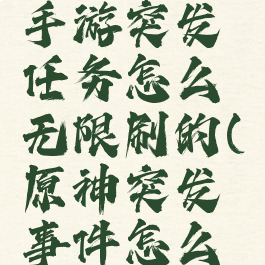 手游突发
任务怎么
无限刷的(
原神突发
事件怎么